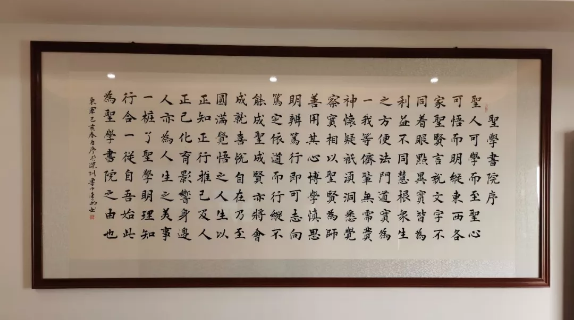 聖學書院序
聖人可學而至聖心
可悟而明縱東西各
家聖賢言說文字不
同着眼點異實皆為
利益不同慧根衆生
之方便法門道實為
一我等儕輩無需費
神懷疑祇須洞悉覺
察實相以聖賢為師
善用其心博學慎思
明辨篤行即可志向
篤定依道而行縱不
能成聖成賢亦將會
成就喜悅自在乃至
圓滿覺悟之人生以
正知正行推己及人
正己化育影響身邊
人亦為人生之美事
一樁了聖學明理知
行合一從自吾始此
為聖學書院之由也
己亥春月序於深圳